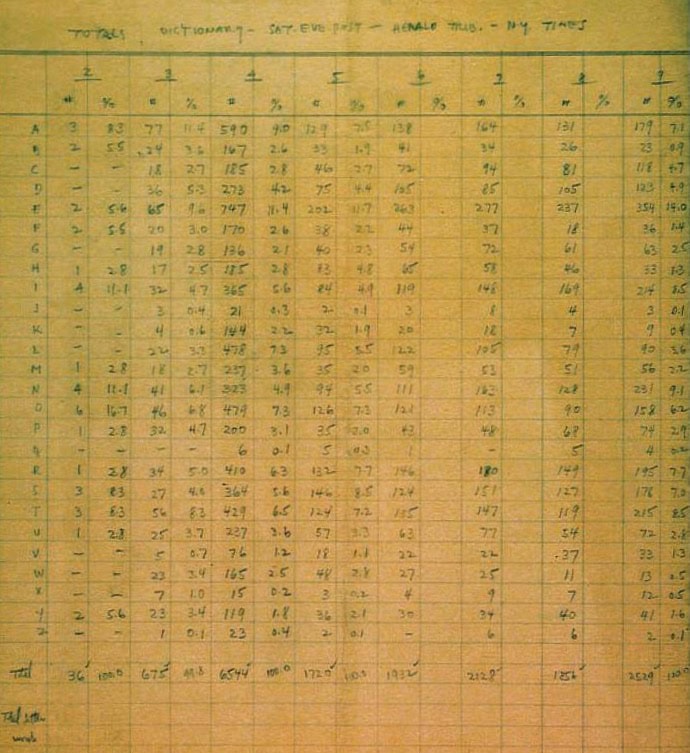 TOTALS DICTIONARY - SAT. EVE POST - HERALD TRIB. - N.Y. TIMES
2 3 4 5 6 7 8 9
# % # % # % # % # % # % # % # %
A 3 8.3 77 11.4 590 9.0 129 7.5 138 164 131 179 7.1
B 2 5.5 24 3.6 167 2.6 33 1.9 41 34 26 23 0.9
C - - 18 2.7 185 2.8 46 2.7 72 94 81 118 4.7
D - - 36 5.3 273 4.2 75 4.4 105 85 105 123 4.9
E 2 5.6 65 9.6 747 11.4 202 11.7 263 277 237 354 14.0
F 2 5.5 20 3.0 170 2.6 38 2.2 44 37 18 36 1.4
G - - 19 2.8 136 2.1 40 2.3 54 72 61 63 2.5
H 1 2.8 17 2.5 185 2.8 83 4.8 65 58 46 33 1.3
I 4 11.1 32 4.7 365 5.6 84 4.9 119 148 169 214 8.5
J - - 3 0.4 21 0.3 2 0.1 3 8 4 3 0.1
K - - 4 0.6 144 2.2 32 1.9 20 18 7 9 0.4
L - - 22 3.3 478 7.3 95 5.5 122 105 79 90 3.6
M 1 2.8 18 2.7 237 3.6 35 2.0 59 53 51 56 2.2
N 4 11.1 41 6.1 323 4.9 94 5.5 111 163 128 231 9.1
O 6 16.7 46 6.8 479 7.3 126 7.3 121 113 90 158 6.2
P 1 2.8 32 4.7 200 3.1 35 2.0 43 48 68 74 2.9
Q - - - - 6 0.1 5 0.3 1 - 5 4 0.2
R 1 2.8 34 5.0 410 6.3 132 7.7 146 180 149 195 7.7
S 3 8.3 27 4.0 364 5.6 146 8.5 124 151 127 178 7.0
T 3 8.3 56 8.3 429 6.5 124 7.2 155 147 119 215 8.5
U 1 2.8 25 3.7 237 3.6 57 3.3 63 77 54 72 2.8
V - - 5 0.7 76 1.2 18 1.1 22 22 37 33 1.3
W - - 23 3.4 165 2.5 48 2.8 27 25 11 13 0.5
X - - 7 1.0 15 0.2 3 0.2 4 9 7 12 0.5
Y 2 5.6 23 3.4 119 1.8 36 2.1 30 34 40 41 1.6
Z - - 1 0.1 23 0.4 2 0.1 - 6 6 2 0.1
Total 36 100.0 675 99.8 6544 100.0 1720 100.0 1932 2128 1856 2529 100.0
Total
words